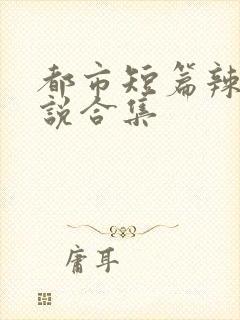 都市短篇辣
说合集
庸耳